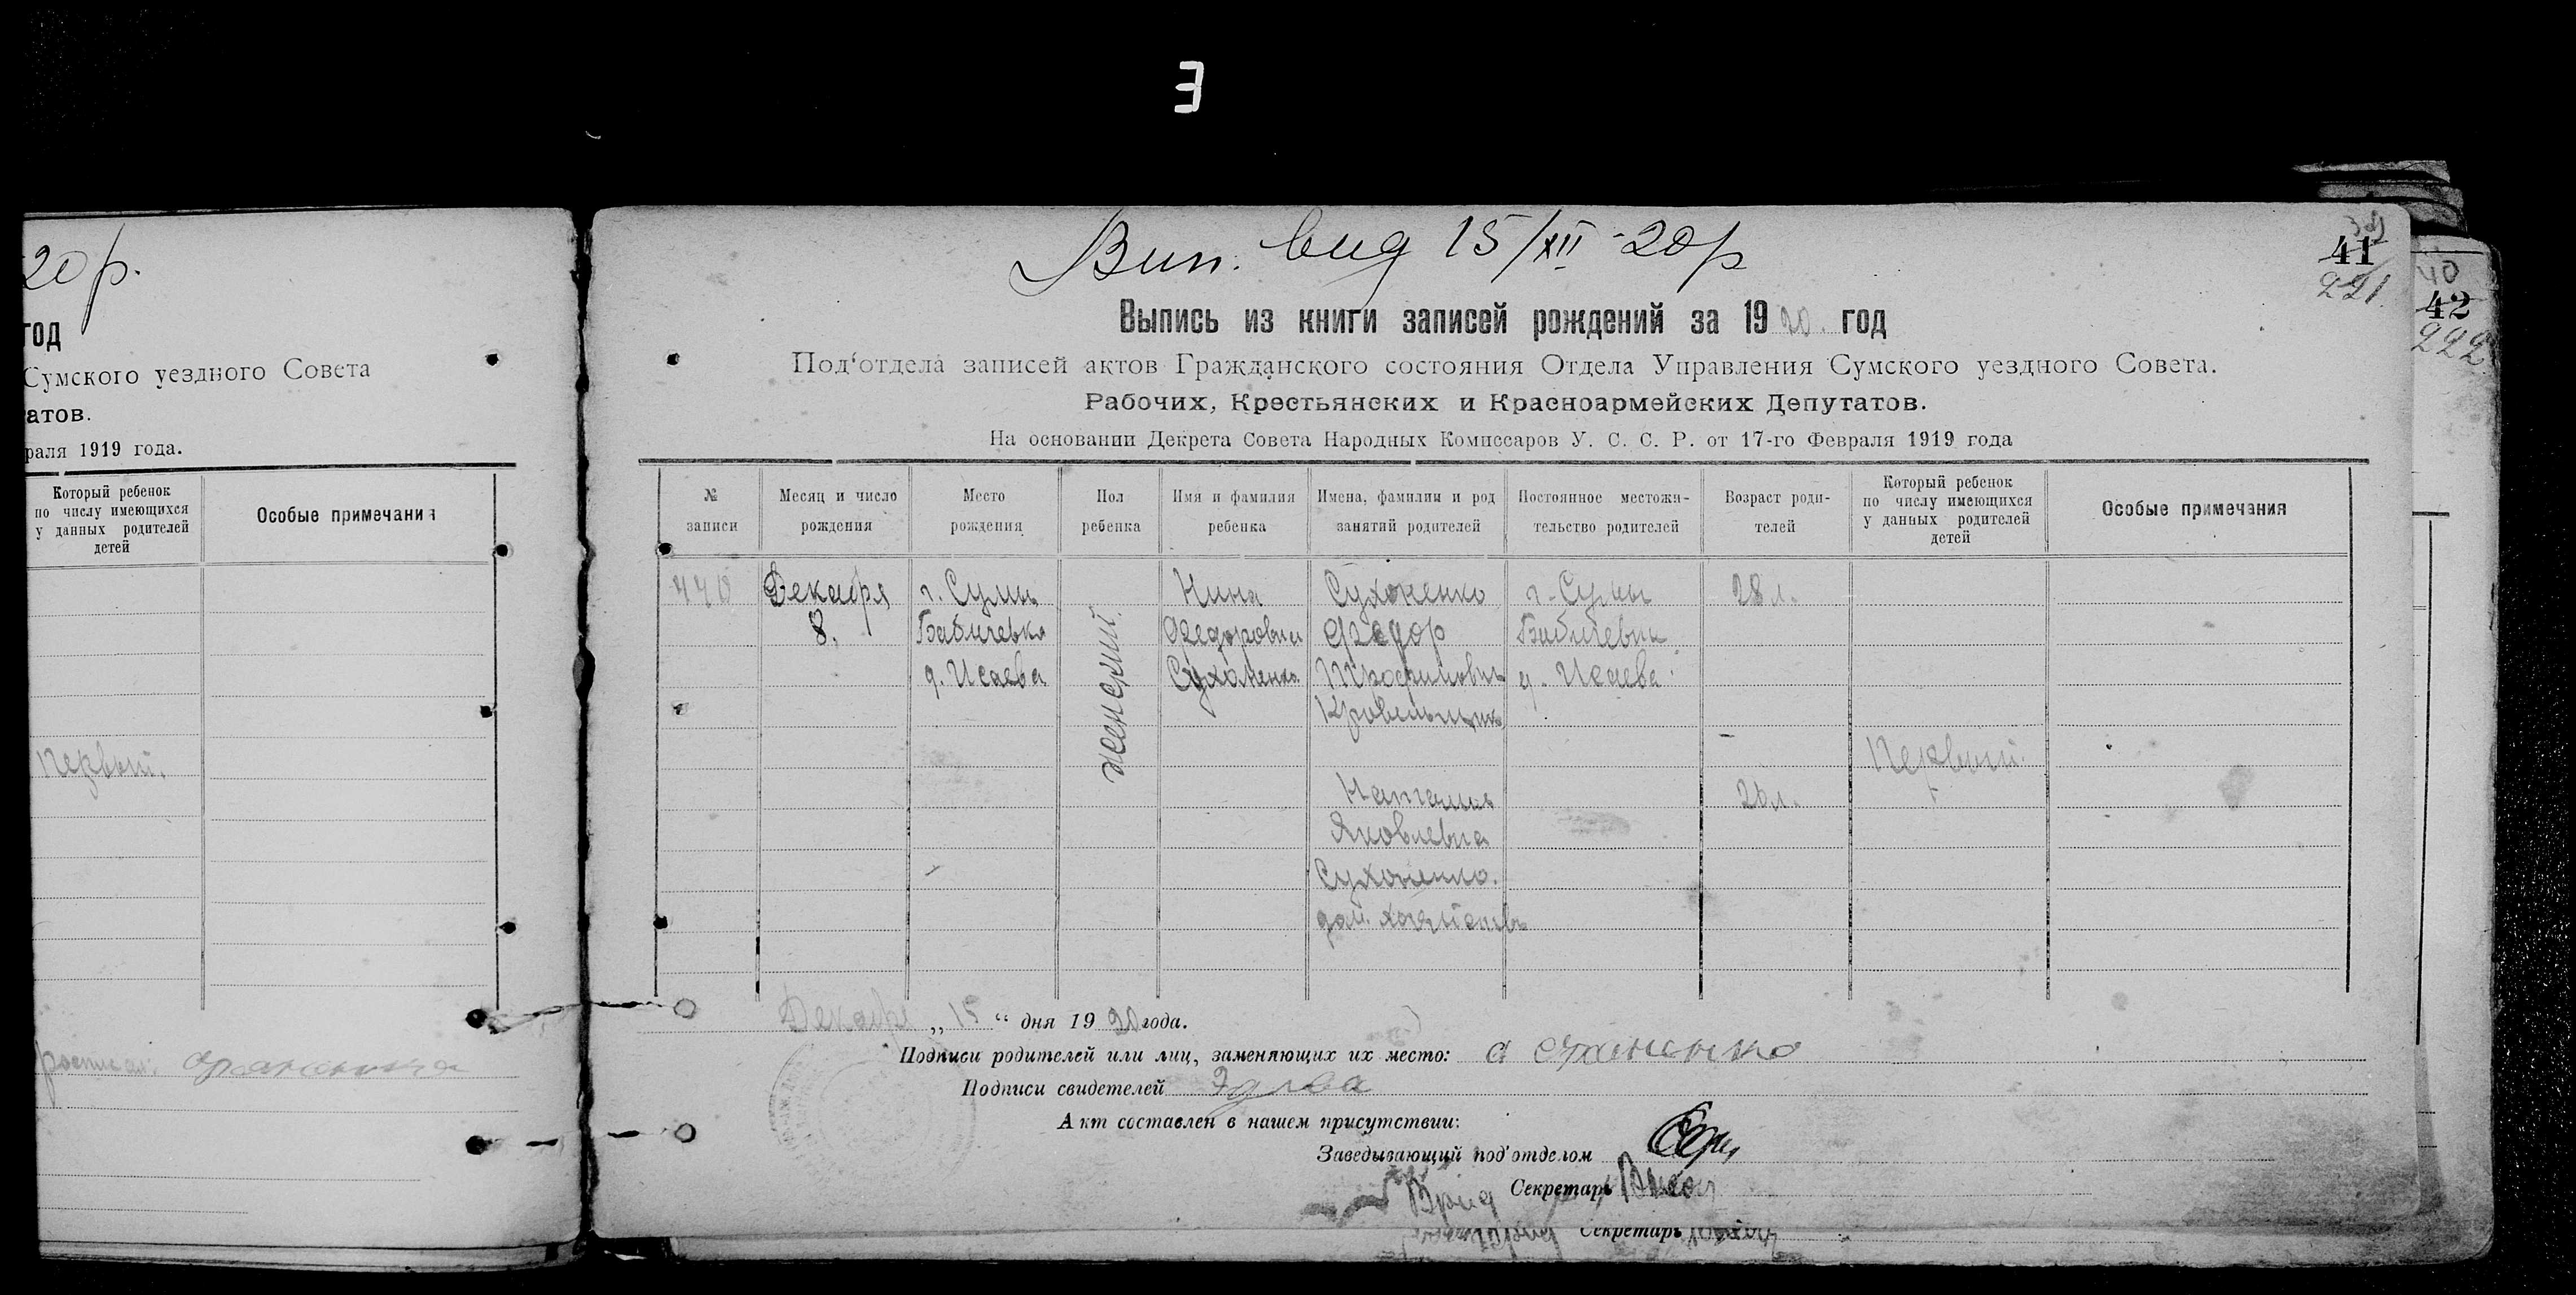 3
20 р.
год
Сумского уездного Совета
атов.
раля 1919 года.
Который ребенок
по числу имеющихся
у данных родителей
детей
Особые примечания
Первый.
Вип. вид 15/XII-20р
41
221
40
42
222
Выпись из книги записей рождений за 1920. год
Под‘отдела записей актов Гражданского состояния Отдела Управления Сумского уездного Совета.
Рабочих, Крестьянских и Красноармейских Депутатов.
На основании Декрета Совета Народных Комиссаров У. С. С. Р. от 17-го Февраля 1919 года
№
записи
Месяц и число
рождения
Место
рождения
Пол
ребенка
Имя и фамилия
ребенка
Имена, фамилии и род
занятий родителей
Постоянное местожи-
тельство родителей
Возраст роди-
телей
Который ребенок
по числу имеющихся
у данных родителей
детей
Особые примечания
440
Декабря
8.
г. Сумы
Бабичевка
д. Исаева
женский.
Нина
Федоровна
Сухоненко
Сухоненко
Федор
Трофимовичъ
Кровельщик
Наталия
Яковлевна
Сухоненко.
дом. хозяйство
г. Сумы
Бабичевка
д. Исаева
28 л.
26 л.
Первый.
Декабря „ 15 “ дня 1920 года.
Подписи родителей или лиц, заменяющих их место:
Подписи свидетелей
Акт составлен в нашем присутствии:
Заведывающий под‘отделом
Врид Секретарь
Секретарь